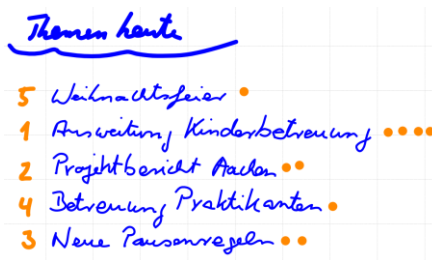 Themen heute
5 Weihnachtsfeier •
1 Ausweitung Kinderbetreuung ••••
2 Projektbericht Aachen ••
4 Betreuung Praktikanten •
3 Neue Pausenregeln ••